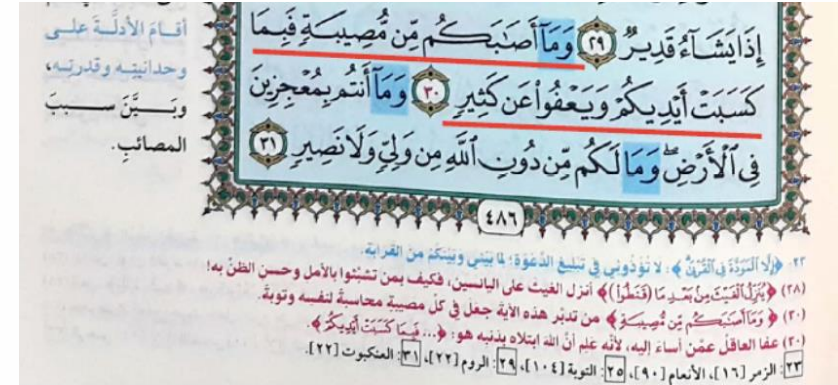 إِذَا يَشَآءُ قَدِيرٌ ٢٩ وَمَآ أَصَٰبَكُم مِّن مُّصِيبَةٍ فَبِمَا
كَسَبَتْ أَيْدِيكُمْ وَيَعْفُوا۟ عَن كَثِيرٍ ٣٠ وَمَآ أَنتُم بِمُعْجِزِينَ
فِى ٱلْأَرْضِ ۖ وَمَا لَكُم مِّن دُونِ ٱللَّهِ مِن وَلِىٍّ وَلَا نَصِيرٍ ٣١
أقامَ الأدلَّةَ على
وحدانيتِه وقدرتِه،
وبَيَّنَ سببَ
المصائبِ.
٤٨٦
٢٣: ﴿إِلَّا ٱلْمَوَدَّةَ فِى ٱلْقُرْبَىٰ﴾: لا تُؤذُوني في تبليغ الدعوة؛ لما بيني وبينكم من القرابة.
(٢٨) ﴿يُنَزِّلُ ٱلْغَيْثَ مِنۢ بَعْدِ مَا (قَنَطُوا۟)﴾ أنزل الغيث على اليائسين، فكيف بمن تشبثوا بالأمل وحسن الظن به!
(٣٠) ﴿وَمَآ أَصَٰبَكُم مِّن مُّصِيبَةٍ﴾ من تدبَّر هذه الآية جعل في كل مصيبة محاسبة لنفسه وتوبة.
(٣٠) عفا العاقلُ عمَّن أساءَ إليه، لأنَّه عَلِمَ أنَّ اللهَ ابتلاه بذنبه هو: ﴿... فَبِمَا كَسَبَتْ أَيْدِيكُمْ﴾.
٢٣: الزمر [١٦]، الأنعام [٩٠]، ٢٥: التوبة [١٠٤]، ٢٩: الروم [٢٢]، ٣١: العنكبوت [٢٢].